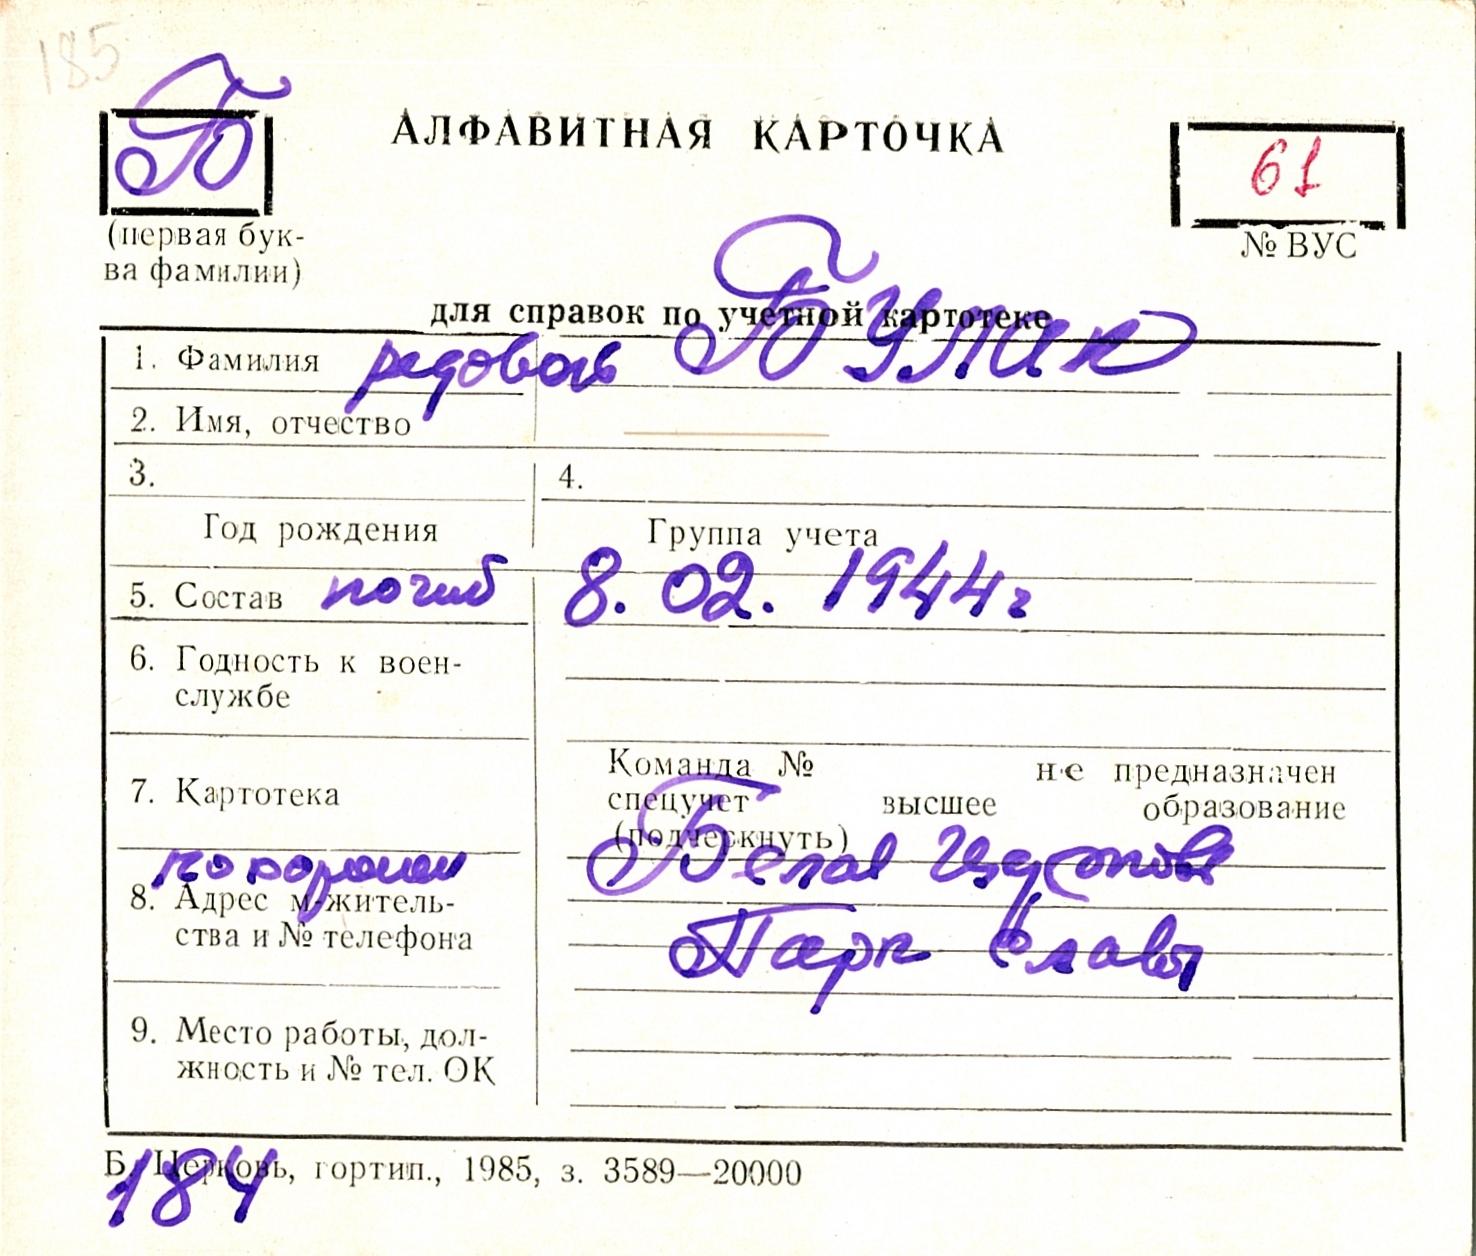 185
Б
АЛФАВИТНАЯ КАРТОЧКА
61
(первая бук-
ва фамилии)
№ ВУС
для справок по учетной картотеке
1. Фамилия рядовой Булак
2. Имя, отчество
3. 4.
Год рождения Группа учета
5. Состав погиб 8. 02. 1944г
6. Годность к воен-
службе
7. Картотека
Команда № не предназначен
спецучет высшее образование
(подчеркнуть)
похоронен Белая Церковь
8. Адрес м-житель-
ства и № телефона
Парк Славы
9. Место работы, дол-
жность и № тел. ОК
Б. Церковь, гортип., 1985, з. 3589—20000
184